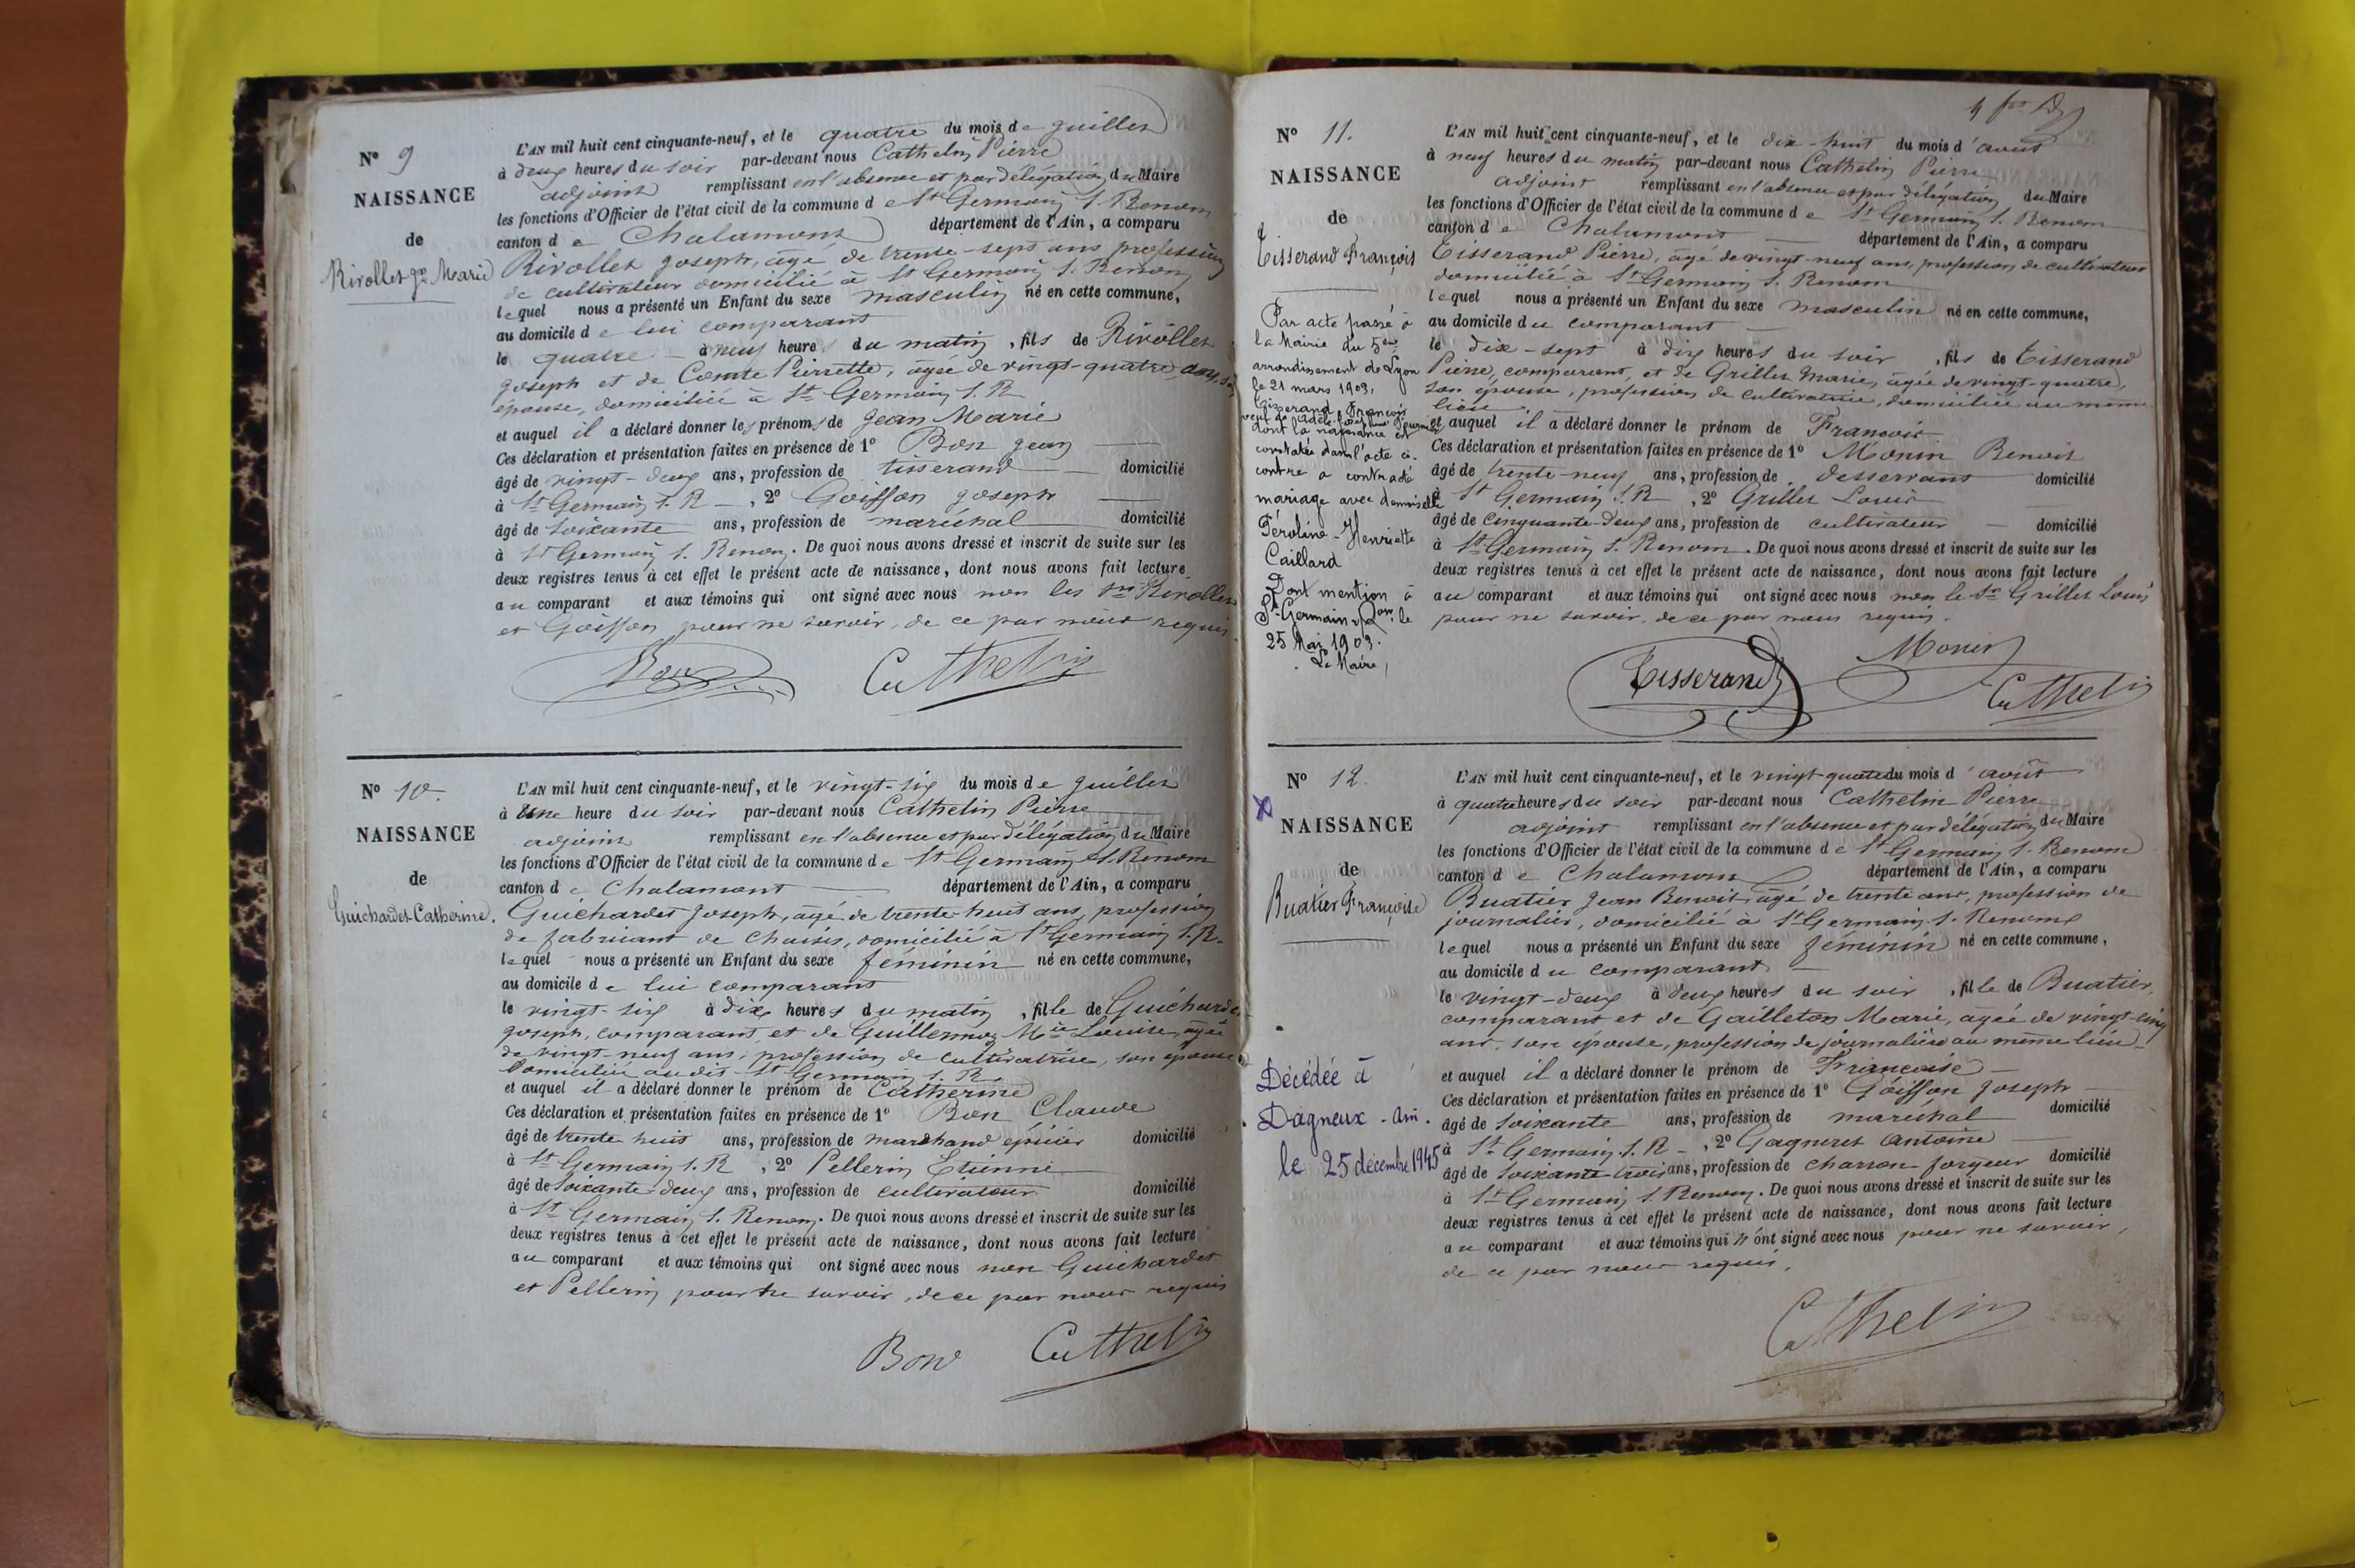 N° 9
NAISSANCE
de
Rivollet Jn Marie
L'AN mil huit cent cinquante-neuf, et le quatre du mois de juillet
à deux heures du soir par-devant nous Cathelin Pierre
adjoint remplissant en l'absence et par délégation du Maire
les fonctions d'Officier de l'état civil de la commune de St Germain s. Renom
canton de Chalamont département de l'Ain, a comparu
Rivollet Joseph, âgé de trente-sept ans profession
de cultivateur domicilié à St Germain s. Renom
lequel nous a présenté un Enfant du sexe masculin né en cette commune,
au domicile de lui comparant
le quatre à neuf heures du matin, fils de Rivollet
Joseph et de Comte Pierrette, âgée de vingt-quatre ans, son
épouse, domiciliée à St Germain s. R
et auquel il a déclaré donner les prénoms de Jean Marie
Ces déclaration et présentation faites en présence de 1° Bon Jean
âgé de vingt-deux ans, profession de tisserand domicilié
à St Germain s. R, 2° Goiffon Joseph
âgé de soixante ans, profession de maréchal domicilié
à St Germain s. Renom. De quoi nous avons dressé et inscrit de suite sur les
deux registres tenus à cet effet le présent acte de naissance, dont nous avons fait lecture
au comparant et aux témoins qui ont signé avec nous non les srs Rivollet
et Goiffon pour ne savoir, de ce par nous requis.
Bon Cathelin
N° 10.
NAISSANCE
de
Guichardet Catherine.
L'AN mil huit cent cinquante-neuf, et le vingt-six du mois de juillet
à une heure du soir par-devant nous Cathelin Pierre
adjoint remplissant en l'absence et par délégation du Maire
les fonctions d'Officier de l'état civil de la commune de St Germain s. Renom
canton de Chalamont département de l'Ain, a comparu
Guichardet Joseph, âgé de trente-huit ans, profession
de fabricant de chaises, domicilié à St Germain s. R.
lequel nous a présenté un Enfant du sexe féminin né en cette commune,
au domicile de lui comparant
le vingt-six à dix heures du matin, fille de Guichardet
Joseph, comparant, et de Guillermoz Mie Louise, agée
de vingt-neuf ans, profession de cultivatrice, son épouse
domiciliée au dit St Germain s. R.
et auquel il a déclaré donner le prénom de Catherine
Ces déclaration et présentation faites en présence de 1° Bon Claude
âgé de trente huit ans, profession de marchand épicier domicilié
à St Germain s. R, 2° Pellerin Etienne
âgé de soixante-deux ans, profession de cultivateur domicilié
à St Germain s. Renom. De quoi nous avons dressé et inscrit de suite sur les
deux registres tenus à cet effet le présent acte de naissance, dont nous avons fait lecture
au comparant et aux témoins qui ont signé avec nous non Guichardet
et Pellerin pour ne savoir, de ce par nous requis
Bon Cathelin
N° 11.
NAISSANCE
de
Tisserand François
Par acte passé à
la Mairie du 5eme
arrondissement de Lyon
le 21 mars 1903,
Tisserand François
veuf de Adèle Fournier
dont la naissance est
constatée dans l'acte ci-
contre a contracté
mariage avec demoiselle
Péroline-Henriette
Caillard
Dont mention à
St-Germain s/ Ron. le
25 Mai 1903.
Le Maire,
L'AN mil huit cent cinquante-neuf, et le dix-huit du mois d'aout
à neuf heures du matin par-devant nous Cathelin Pierre
adjoint remplissant en l'absence et par délégation du Maire
les fonctions d'Officier de l'état civil de la commune de St Germain s. Renom
canton de Chalamont département de l'Ain, a comparu
Tisserand Pierre, âgé de vingt-neuf ans, profession de cultivateur
domicilié à St Germain s. Renom
lequel nous a présenté un Enfant du sexe masculin né en cette commune,
au domicile du comparant
le dix-sept à dix heures du soir, fils de Tisserand
Pierre, comparant, et de Grillet Marie, âgée de vingt-quatre,
son épouse, profession de cultivatrice, domiciliée au même
lieu
et auquel il a déclaré donner le prénom de François
Ces déclaration et présentation faites en présence de 1° Monin Benoit
âgé de trente-neuf ans, profession de desservant domicilié
à St Germain s. R, 2° Grillet Louis
âgé de cinquante-deux ans, profession de cultivateur domicilié
à St Germain s. Renom. De quoi nous avons dressé et inscrit de suite sur les
deux registres tenus à cet effet le présent acte de naissance, dont nous avons fait lecture
au comparant et aux témoins qui ont signé avec nous non le sr Grillet Louis
pour ne savoir, de ce par nous requis.
Tisserand Monin Cathelin
N° 12.
NAISSANCE
de
Buatier Françoise
Décédée à
Dagneux - Ain.
le 25 décembre 1945
L'AN mil huit cent cinquante-neuf, et le vingt-quatre du mois d'août
à quatre heures du soir par-devant nous Cathelin Pierre
adjoint remplissant en l'absence et par délégation du Maire
les fonctions d'Officier de l'état civil de la commune de St Germain s. Renom
canton de Chalamont département de l'Ain, a comparu
Buatier Jean Benoit âgé de trente ans, profession de
journalier, domicilié à St Germain s. Renom
lequel nous a présenté un Enfant du sexe féminin né en cette commune,
au domicile du comparant
le vingt-deux à deux heures du soir, fille de Buatier,
comparant et de Gailleton Marie, agée de vingt-cinq
ans, son épouse, profession de journalière au même lieu
et auquel il a déclaré donner le prénom de Françoise
Ces déclaration et présentation faites en présence de 1° Goiffon Joseph
âgé de soixante ans, profession de maréchal domicilié
à St Germain s. R, 2° Gagneret Antoine
âgé de soixante-trois ans, profession de charron-forgeur domicilié
à St Germain s. Renom. De quoi nous avons dressé et inscrit de suite sur les
deux registres tenus à cet effet le présent acte de naissance, dont nous avons fait lecture
au comparant et aux témoins qui n'ont signé avec nous pour ne savoir,
de ce par nous requis.
Cathelin